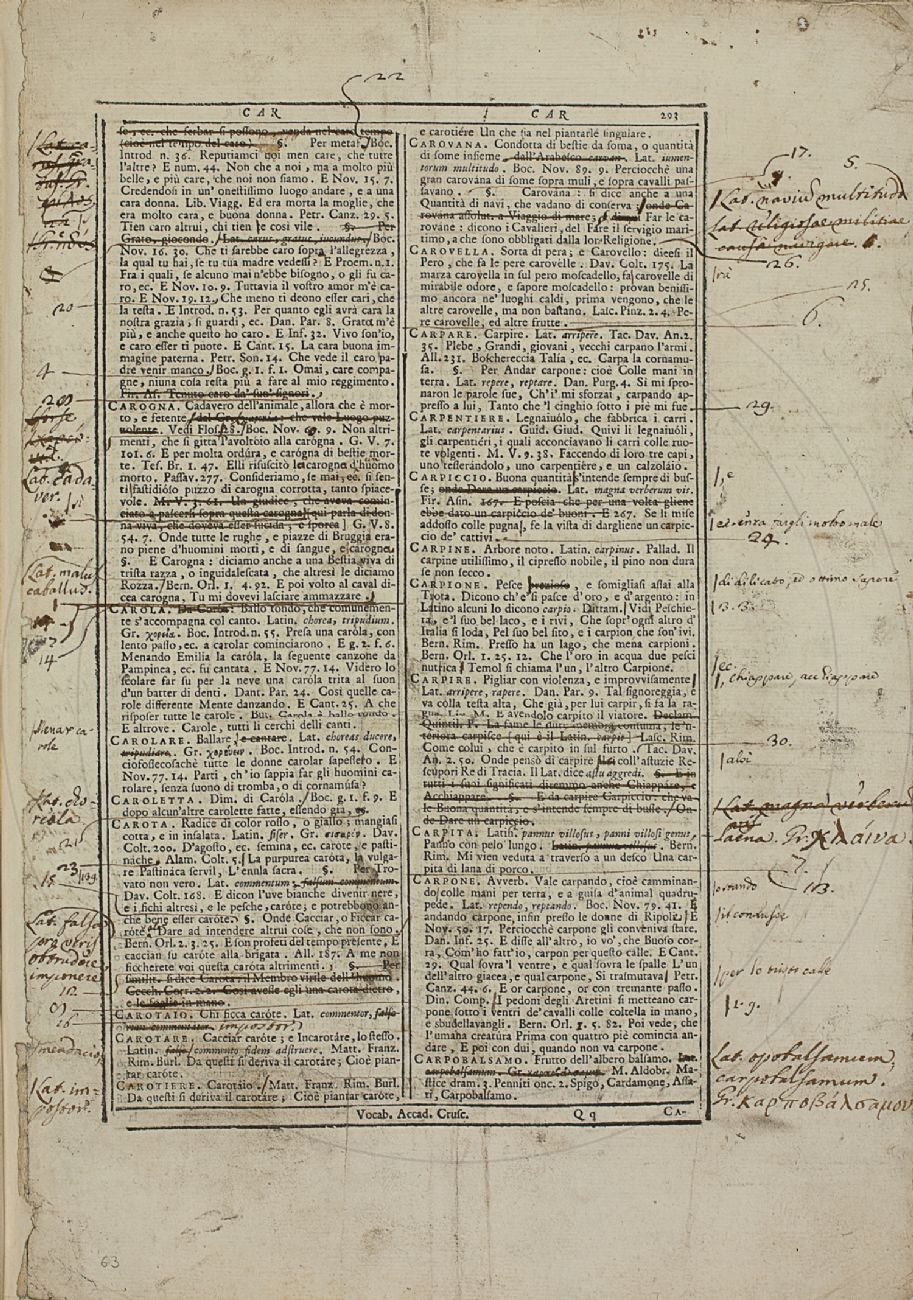 22
CAR
CAR 293
se, ec. che serbar si possono, venda nel caro tempo
(cioè nel tempo del caro) §. Per metaf. Boc.
Introd n. 36. Reputiamci noi men care, che tutte
l'altre? E num. 44. Non che a noi, ma a molto più
belle, e più care, che noi non siamo. E Nov. 15. 7.
Credendosi in un' onestissimo luogo andare, e a una
cara donna. Lib. Viagg. Ed era morta la moglie, che
era molto cara, e buona donna. Petr. Canz. 29. 5.
Tien caro altrui, chi tien se così vile. §. Per
Grato, giocondo. Lat. carus, gratus, iucundus. Boc.
Nov. 16. 30. Che ti sarebbe caro sopra l'allegrezza,
la qual tu hai, se tu tua madre vedessi? E Proem. n. 1.
Fra i quali, se alcuno mai n'ebbe bisogno, o gli fu ca-
ro, ec. E Nov. 10. 9. Tuttavia il vostro amor m'è ca-
ro. E Nov. 19. 12. Che meno ti deono esser cari, che
la testa. E Introd. n. 53. Per quanto egli avrà cara la
nostra grazia, si guardi, ec. Dan. Par. 8. Grata m'è
più, e anche questo ho caro. E Inf. 32. Vivo son'io,
e caro esser ti puote. E Cant. 15. La cara buona im-
magine paterna. Petr. Son. 14. Che vede il caro pa-
dre venir manco. Boc. g. 1. f. 1. Omai, care compa-
gne, niuna cosa resta più a fare al mio reggimento.
Fir. As. Tenuto caro da' suo' signori.
CAROGNA. Cadavero dell'animale, allora che è mor-
to, e fetente, che vale Luogo puz-
zolente. Vedi Flos 8. Boc. Nov. 9. Non altri-
menti, che si gitta l'avoltoio alla carógna. G. V. 7.
101. 6. E per molta ordúra, e carógna di bestie mor-
te. Tes. Br. 1. 47. Elli risuscitò la carogna d'huomo
morto. Passav. 277. Consideriamo, se mai, ec. si sen-
tì fastidióso puzzo di carogna corrotta, tanto spiace-
vole. M. V. 3. 61. Un giudice, che aveva comin-
ciato a pascersi sopra questa carogna (qui parla di don-
na viva, che doveva esser sucida, e sporca). G. V. 8.
54. 7. Onde tutte le rughe, e piazze di Bruggia era-
no piene d'huomini morti, e di sangue, e carogne.
§. E Carogna: diciamo anche a una Bestia viva di
trista razza, o inguidalescata, che altresì le diciamo
Rozza. Bern. Orl. 1. 4. 92. E poi volto al caval di-
cea carogna, Tu mi dovevi lasciare ammazzare.
CAROLA. Da Carus. Ballo tondo, che comunemen-
te s'accompagna col canto. Latin. chorea, tripudium.
Gr. χορεία. Boc. Introd. n. 55. Presa una caróla, con
lento passo, ec. a carolar cominciarono. E g. 2. f. 6.
Menando Emilia la caróla, la seguente canzone da
Pampinea, ec. fu cantata. E Nov. 77. 14. Videro lo
scolare far su per la neve una caróla trita al suon
d'un batter di denti. Dant. Par. 24. Così quelle ca-
role differente Mente danzando. E Cant. 25. A che
risposer tutte le carole. But. Carola è ballo tondo.
E altrove. Carole, tutti li cerchi delli canti.
CAROLARE. Ballare, e cantare. Lat. choreas ducere,
tripudiare. Gr. χορεύειν. Boc. Introd. n. 54. Con-
ciofossecosachè tutte le donne carolar sapessero. E
Nov. 77. 14. Parti, ch'io sappia far gli huomini ca-
rolare, senza suono di tromba, o di cornamusa?
CAROLETTA. Dim. di Caróla. Boc. g. 1. f. 9. E
dopo alcun'altre carolette fatte, essendo già, ec.
CAROTA. Radice di color rosso, o giallo; mangiasi
cotta, e in insalata. Latin. siser. Gr. σίσαρον. Dav.
Colt. 200. D'agosto, ec. semina, ec. carote, e pasti-
nache. Alam. Colt. 5. La purpurea caróta, la vulga-
re Pastináca servil, L'enula sacra. §. Per Tro-
vato non vero. Lat. commentum, falsum commentum.
Dav. Colt. 168. E dicon l'uve bianche divenir nere,
e i fichi altresì, e le pesche, caróte; e potrebbono an-
che bene esser caróte. §. Onde Cacciar, o Ficcar ca-
róte: Dare ad intendere altrui cose, che non sono.
Bern. Orl. 2. 3. 25. E son profeti del tempo presente, E
caccian su caróte alla brigata. All. 187. A me non
ficcherete voi questa caróta altrimenti. §. Per
similit. si dice Caróta, il Membro virile dell'Huomo.
Cecch. Corr. 2. 2. Così avesse egli una carota dietro,
e le foglie in mano.
CAROTAIO. Chi ficca caróte. Lat. commentor, falso-
rum commentator impostor.
CAROTARE. Cacciar caróte; e Incarotáre, lo stesso.
Latin. falso commento fidem adstruere. Matt. Franz.
Rim. Burl. Da questi si deriva il carotáre; Cioè pian-
tar caróte.
CAROTIERE. Carotáio. Matt. Franz. Rim. Burl.
Da questi si deriva il carotáre; Cioè piantar caróte,
e carotiére Un che sia nel piantarle singulare.
CAROVANA. Condotta di bestie da soma, o quantità
di some insieme, dall'Arabesco carvan. Lat. iumen-
torum multitudo. Boc. Nov. 89. 9. Perciocchè una
gran carována di some sopra muli, e sopra cavalli pas-
savano. §. Carovana: si dice anche a una
Quantità di navi, che vadano di conserva: onde Ca-
rována assolut. a Viaggio di mare; Far le ca-
rováne: dicono i Cavalieri, del Fare il servigio mari-
timo, a che sono obbligati dalla lor Religione.
CAROVELLA. Sorta di pera; e Carovello: dicesi il
Pero, che fa le pere carovélle. Dav. Colt. 175. La
marza carovella in sul pero moscadello, fa carovelle di
mirabile odore, e sapore moscadello: provan benissi-
mo ancora ne' luoghi caldi, prima vengono, che le
altre carovelle, ma non bastano. Lasc. Pinz. 2. 4. Pe-
re carovelle, ed altre frutte.
CARPARE. Carpire. Lat. arripere. Tac. Dav. An. 2.
35. Plebe, Grandi, giovani, vecchi carpano l'armi.
All. 231. Boschereccia Talía, ec. Carpa la cornamu-
sa. §. Per Andar carpone: cioè Colle mani in
terra. Lat. repere, reptare. Dan. Purg. 4. Sì mi spro-
naron le parole sue, Ch'i' mi sforzai, carpando ap-
presso a lui, Tanto che 'l cinghio sotto i piè mi fue.
CARPENTIERE. Legnaiuólo, che fabbrica i carri.
Lat. carpentarius. Guid. Giud. Quivi li legnaiuóli,
gli carpentiéri, i quali acconciavano li carri colle ruo-
te volgenti. M. V. 9. 38. Faccendo di loro tre capi,
uno tesserándolo, uno carpentiére, e un calzoláio.
CARPICCIO. Buona quantità, s'intende sempre di bus-
se; onde Dare un carpíccio. Lat. magna verberum vis.
Fir. Asin. 167. E poscia che per una volta gliene
ebbe dato un carpíccio de' buoni. E 267. Se li mise
addosso colle pugna, se la vista di dargliene un carpic-
cio de' cattivi.
CARPINE. Arbore noto. Latin. carpinus. Pallad. Il
carpine utilissimo, il cipresso nobile, il pino non dura
se non secco.
CARPIONE. Pesce prezioso, e somigliasi assai alla
Trota. Dicono ch'e' si pasce d'oro, e d'argento: in
Latino alcuni lo dicono carpio. Dittam. Vidi Peschie-
ra, e 'l suo bel laco, e i rivi, Che sopr'ogni altro d'
Italia si loda, Pel suo bel sito, e i carpion che son'ivi.
Bern. Rim. Presso ha un lago, che mena carpioni.
Bern. Orl. 1. 25. 12. Che l'oro in acqua due pesci
nutrica, Temol si chiama l'un, l'altro Carpione.
CARPIRE. Pigliar con violenza, e improvvisamente.
Lat. arripere, rapere. Dan. Par. 9. Tal signoreggia, e
va colla testa alta, Che già, per lui carpir, si fa la ra-
gna. Liv. M. E avendolo carpito il viatore. Declam.
Quintil. P. La fame le dure membra consuma, le 'n-
teriora carpisce (qui è il Latin. carpit). Lasc. Rim.
Come colui, che è carpito in sul furto. Tac. Dav.
An. 2. 50. Onde pensò di carpire coll'astuzie Re-
scúpori Re di Tracia. Il Lat. dice astu aggredi. §. E in
tutti i suoi significati diremmo anche Chiappare, e
Acchiappare. §. E da carpire Carpíccio, che va-
le Buona quantità, e s'intende sempre di busse. On-
de Dare un carpíccio.
CARPITA. Latin. pannus villosus, panni villosi genus.
Panno con pelo lungo. Latin. pannus villosus. Bern.
Rim. Mi vien veduta a traverso a un desco Una car-
pita di lana di porco.
CARPONE. Avverb. Vale carpando, cioè camminan-
do colle mani per terra, e a guisa d'animal quadru-
pede. Lat. rependo, reptando. Boc. Nov. 79. 41. E
andando carpone, infin presso le donne di Ripoli. E
Nov. 50. 17. Perciocchè carpone gli conveniva stare.
Dan. Inf. 25. E disse all'altro, io vo', che Buoso cor-
ra, Com'ho fatt'io, carpon per questo calle. E Cant.
29. Qual sovra 'l ventre, e qual sovra le spalle L'un
dell'altro giacea, e qual carpone, Si trasmutava. Petr.
Canz. 44. 6. E or carpone, or con tremante passo.
Din. Comp. I pedoni degli Aretini si metteano car-
pone sotto i ventri de' cavalli colle coltella in mano,
e sbudellavangli. Bern. Orl. 3. 5. 82. Poi vede, che
l'umana creatura Prima con quattro piè comincia an-
dare, E poi con dui, quando non va carpone.
CARPOBALSAMO. Frutto dell'albero balsamo. Lat.
carpobalsamum. Gr. καρποβάλσαμον. M. Aldobr. Ma-
stice dram. 3. Penniti onc. 2. Spigo, Cardamone, Assa-
ri, Carpobalsamo.
Vocab. Accad. Crusc. Q q CA-
20
4
Lat. cada
ver.
Lat. malus
caballus.
14
Menar ca
role
21
23
15
Lat. falsa
pro veris
obtrudere
imponere
12
16
mendacio
Lat. im-
postor.
17.
5
Lat. navium multitudo
Lat. religiosae militiae
6.
26.
25.
6.
29.
senza fargli molto male
24.
di dilicato, ed ottimo sapore
3. 3.
ec.
chiappare, acchiappare
30.
Lat. magna verberum
laena. Gr. χλαίνα.
7.
13.
per lo tristo calle
Lat. opobalsamum,
carpobalsamum.
Gr. καρποβάλσαμον
63